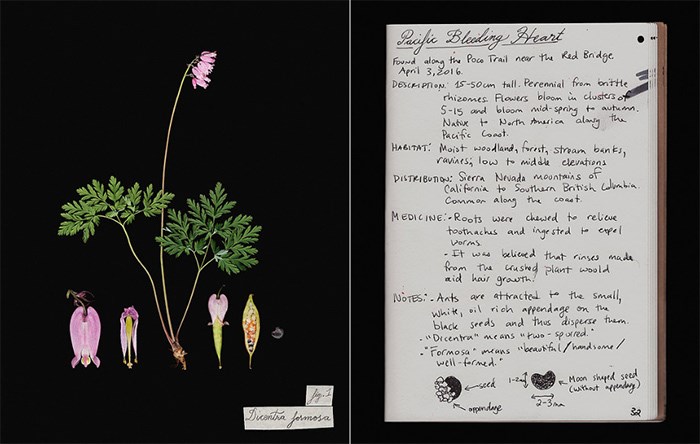 fig. 1
Dicentra formosa
Pacific Bleeding Heart
Found along the Poco Trail near the Red Bridge.
April 3, 2016.
DESCRIPTION: 15-50cm tall. Perennial from brittle
rhizomes. Flowers bloom in clusters of
5-15 and bloom mid-spring to autumn.
Native to North America along the
Pacific Coast.
HABITAT: Moist woodland, forest, stream banks,
ravines, low to middle elevations
DISTRIBUTION: Sierra Nevada mountains of
California to Southern British Columbia.
Common along the coast.
MEDICINE: - Roots were chewed to relieve
toothaches and ingested to expel
worms
- It was believed that rinses made
from the crushed plant would
aid hair growth.
NOTES: - Ants are attracted to the small,
white, oil rich appendage on the
black seeds and thus disperse them.
- "Dicentra" means "two-spurred."
- "Formosa" means "beautiful/handsome/
well-formed."
seed
appendage
1-2
2-3mm
Moon shaped seed
(without appendage)
32